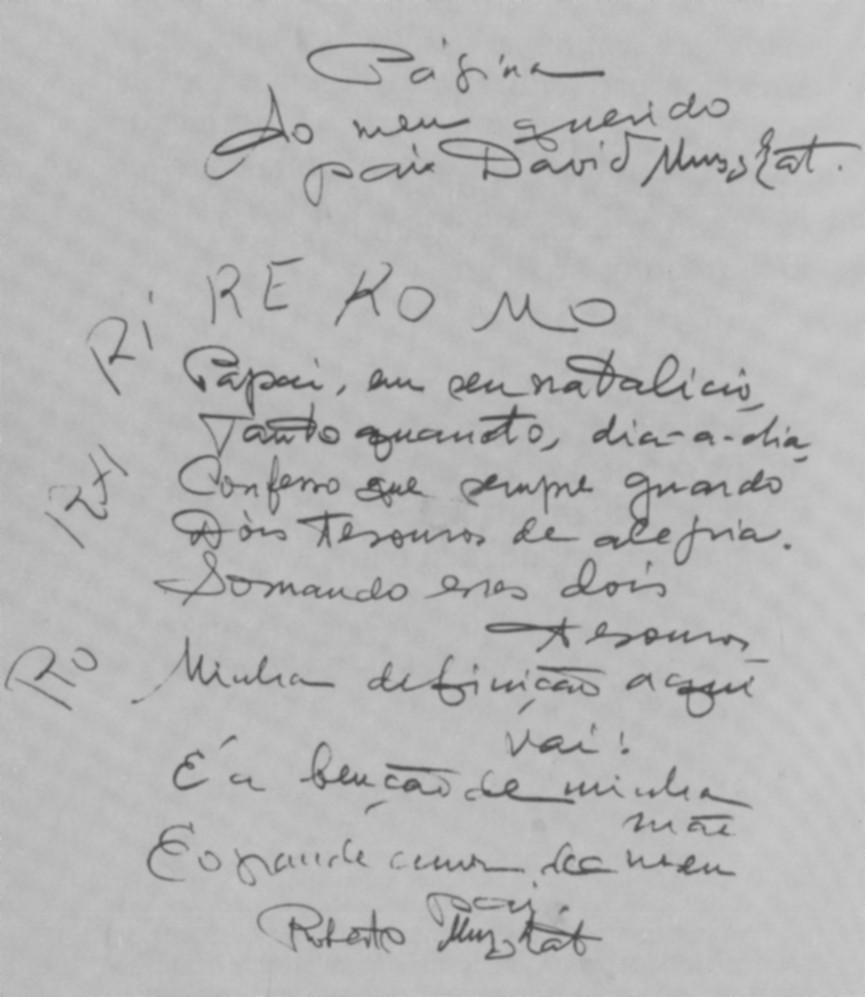 Página
Ao meu querido
pai David Muszkat.
RE KO MO
Ri
Papai, em seu natalicio,
Tanto quanto, dia-a-dia,
Confesso que sempre guardo
Dois Tesouros de alegria.
Somando esses dois
tesouros
Ro
Minha definição aqui
vai!
É a benção de minha
mãe
E o grande amor de meu
pai.
Roberto Muszkat